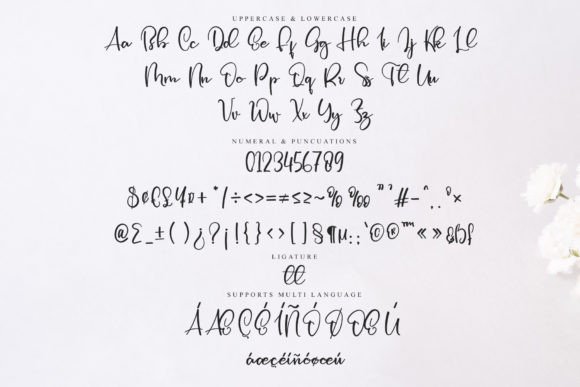 UPPERCASE & LOWERCASE
Aa Bb Cc Dd Ee Ff Gg Hh Ii Jj Kk Ll
Mm Nn Oo Pp Qq Rr Ss Tt Uu
Vv Ww Xx Yy Zz
NUMERAL & PUNCUATIONS
0123456789
$¢€£¥¤+*/÷<>=≠≤≥~%‰ "'#-^.,°×
@Σ_±()¿?¡!{}‹›[]§¶µ:;`©®™«»
LIGATURE
tt
SUPPORTS MULTI LANGUAGE
ÁÆÇÉÍÑÓØŒÚ
áæçéíñóøœú